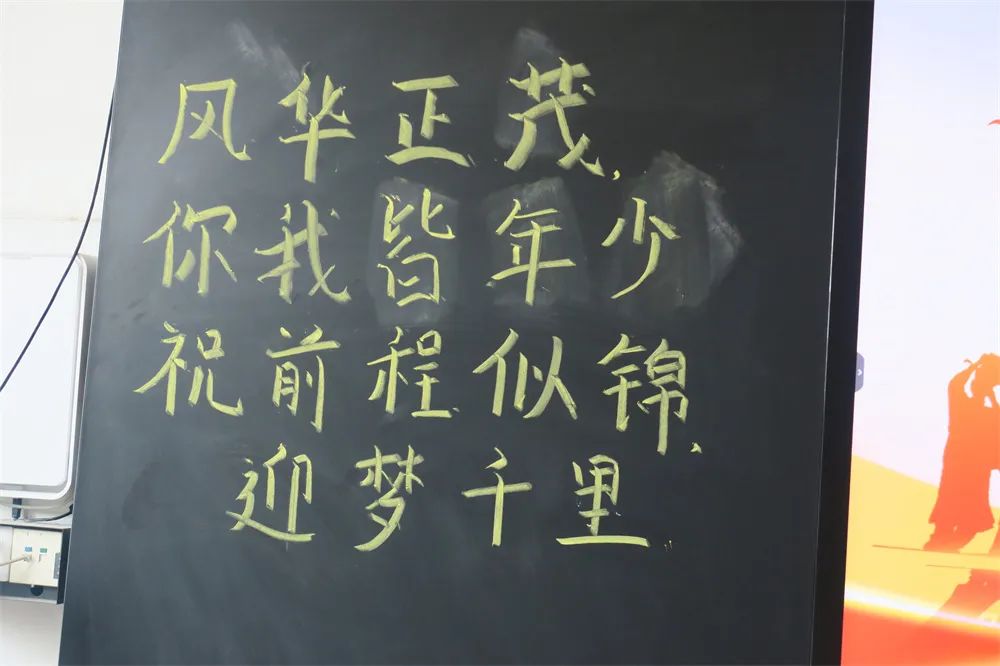 风华正茂,
你我皆年少
祝前程似锦,
迎梦千里.